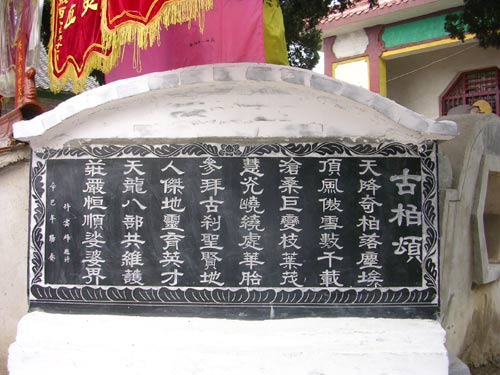 古柏頌
天降奇柏落塵埃
頂風傲雪數千載
滄桑巨變枝葉茂
慧光嶢繞處華胎
參拜古刹聖賢地
人傑地靈育英才
天龍八部共維護
莊嚴恒順娑婆界
辛巳年陽春